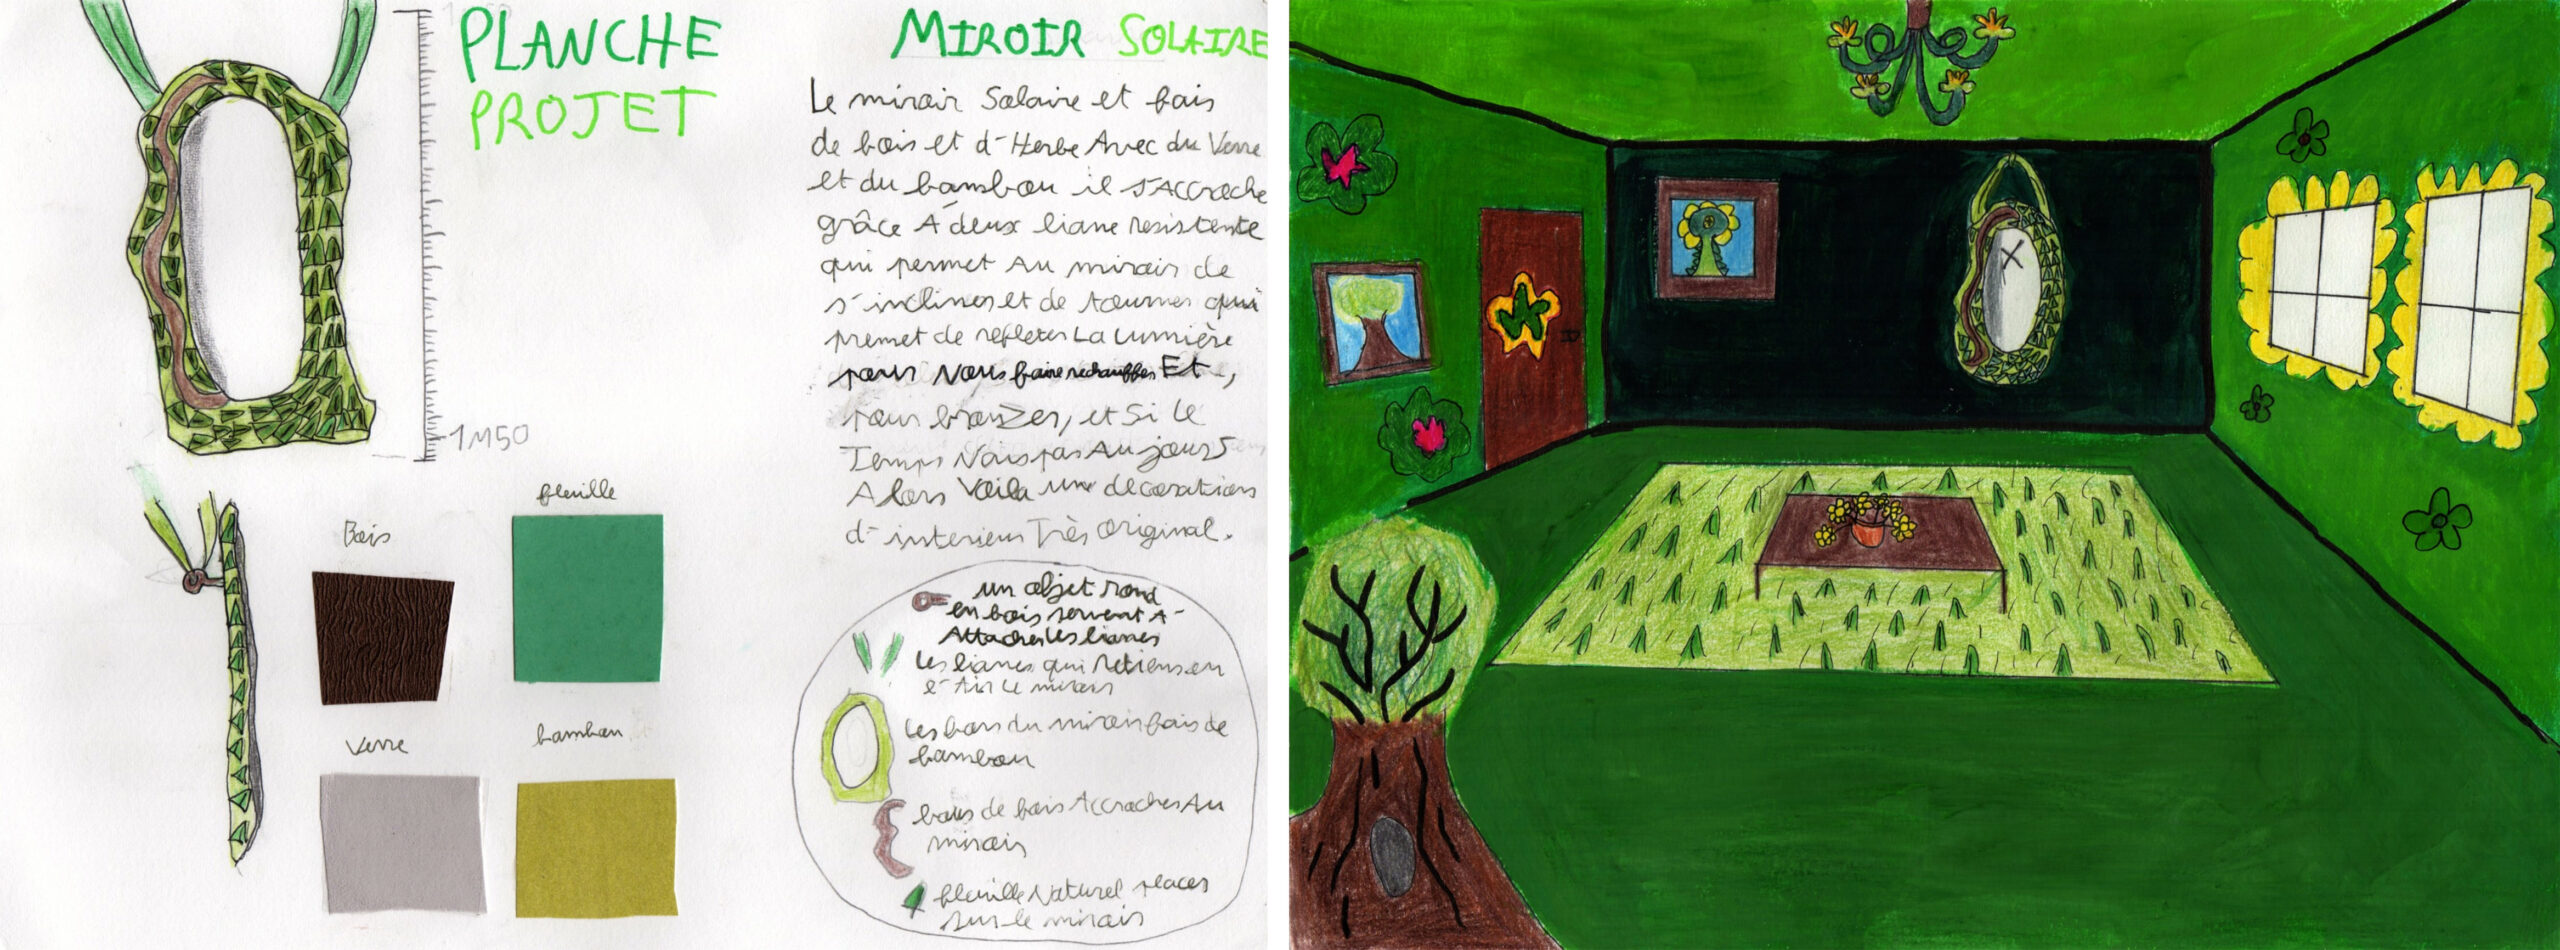 PLANCHE
PROJET
1M50
MIROIR SOLAIRE
Le miroir Solaire et fais
de bois et d'Herbe Avec du Verre
et du bambou il s'Accroche
grâce A deux liane resistente
qui permet Au mirois de
s'inclines et de tournes qui
premet de refletes La Lumière
pour Nous faire rechauffes Et,
pour bronzes, et si le
Temps Nais pas Au jours
Alors Voila une decorations
d'interieur Très Original.
feuille
Bois
Verre
bambou
un objet rond
en bois servent A
Attaches les lianes
Les lianes qui Retiens en
l'Air Le mirois
Les bors du mirois fais de
bambou
bouts de bois Accroches Au
mirois
feuille Naturel places
sur le mirois